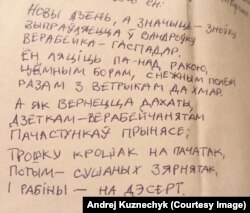 ён:
НОВЫ ДЗЕНЬ, А ЗНАЧЫЦЬ - ЗНОЎКУ
ВЫПРАЎЛЯЕЦЦА Ў ВАНДРОЎКУ
ВЕРАБЕЙКА-ГАСПАДАР.
ЁН ЛЯЦІЦЬ ПА-НАД РАКОЮ,
ЦЁМНЫМ БОРАМ, СНЕЖНЫМ ПОЛЕМ
РАЗАМ З ВЕТРЫКАМ ДА ХМАР.
А ЯК ВЕРНЕЦЦА ДАХАТЫ,
ДЗЕТКАМ-ВЕРАБЕЙЧАНЯТАМ
ПАЧАСТУНКАЎ ПРЫНЯСЕ;
ТРОШКУ КРОШАК НА ПАЧАТАК,
ПОТЫМ- СУШАНЫХ ЗЯРНЯТАК,
І РАБІНЫ - НА ДЭСЕРТ.
Andrej Kuznechyk (Courtesy Image)